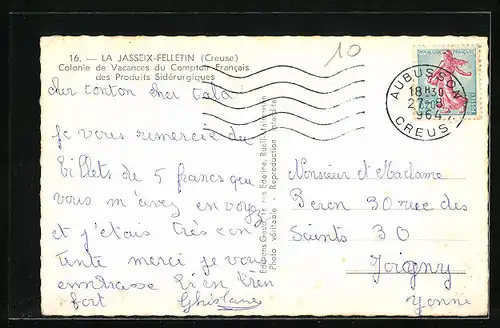 16. — LA JASSEIX-FELLETIN (Creuse)
Colonie de Vacances du Comptoir Français
des Produits Sidérurgiques
10
AUBUSSON
18H30
27-8
964
CREUSE
cher tonton cher tata
je vous remercie du
billets de 5 francs que
vous m'avez envoye
et j'etais très con
tente merci je vous
embrasse bien bien
fort Ghislane
Photo véritable - Reproduction interdite
Monsieur et Madame
Peron 30 rue des
Saints 30
Joigny
Yonne